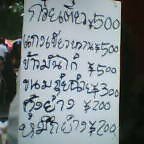 ก๋วยเตี๋ยว ¥500
แกงเขียวหวาน ¥500
ข้ามันไก่ ¥500
ขนม ¥300
กุ้งย่าง ¥200
หมึกย่าง ¥200